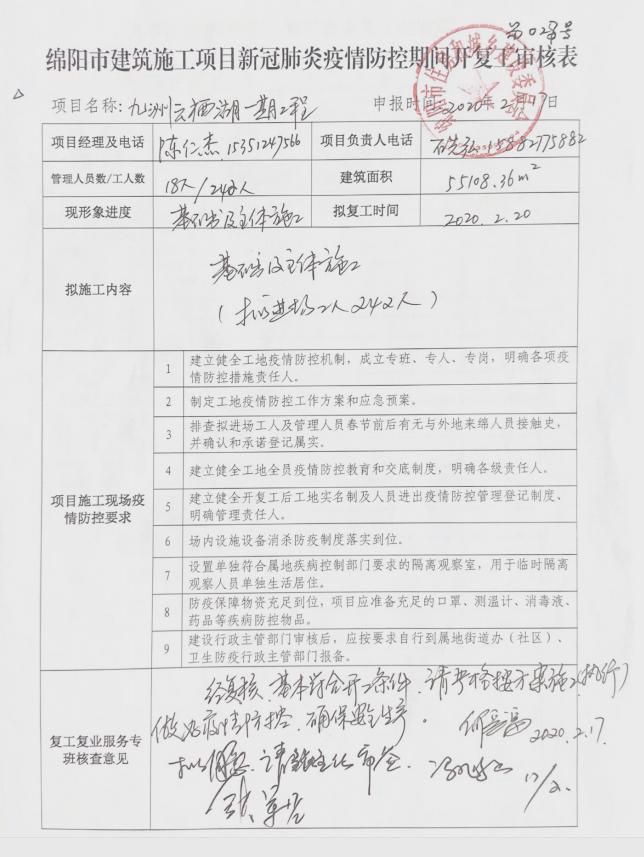 第028号
绵阳市建筑施工项目新冠肺炎疫情防控期间开复工审核表
项目名称:九洲云栖湖一期工程 申报时间:2020年2月17日
项目经理及电话 陈仁杰 15351247566 项目负责人电话 15882775882
管理人员数/工人数 18人/242人 建筑面积 55108.36m²
现形象进度 基础及主体施工 拟复工时间 2020.2.20
拟施工内容
基础及主体施工
(拟进场工人242人)
项目施工现场疫情防控要求
1 建立健全工地疫情防控机制,成立专班、专人、专岗,明确各项疫
情防控措施责任人。
2 制定工地疫情防控工作方案和应急预案。
3 排查拟进场工人及管理人员春节前后有无与外地来绵人员接触史,
并确认和承诺登记属实。
4 建立健全工地全员疫情防控教育和交底制度,明确各级责任人。
5 建立健全开复工后工地实名制及人员进出疫情防控管理登记制度、
明确管理责任人。
6 场内设施设备消杀防疫制度落实到位。
7 设置单独符合属地疾病控制部门要求的隔离观察室,用于临时隔离
观察人员单独生活居住。
8 防疫保障物资充足到位,项目应准备充足的口罩、测温计、消毒液、
药品等疾病防控物品。
9 建设行政主管部门审核后,应按要求自行到属地街道办(社区)、
卫生防疫行政主管部门报备。
复工复业服务专班核查意见
经复核,基本符合开工条件,请严格按方案施工(执行)
做好疫情防控,确保安全生产。 2020.2.17.
拟同意,请 审签 17/2.